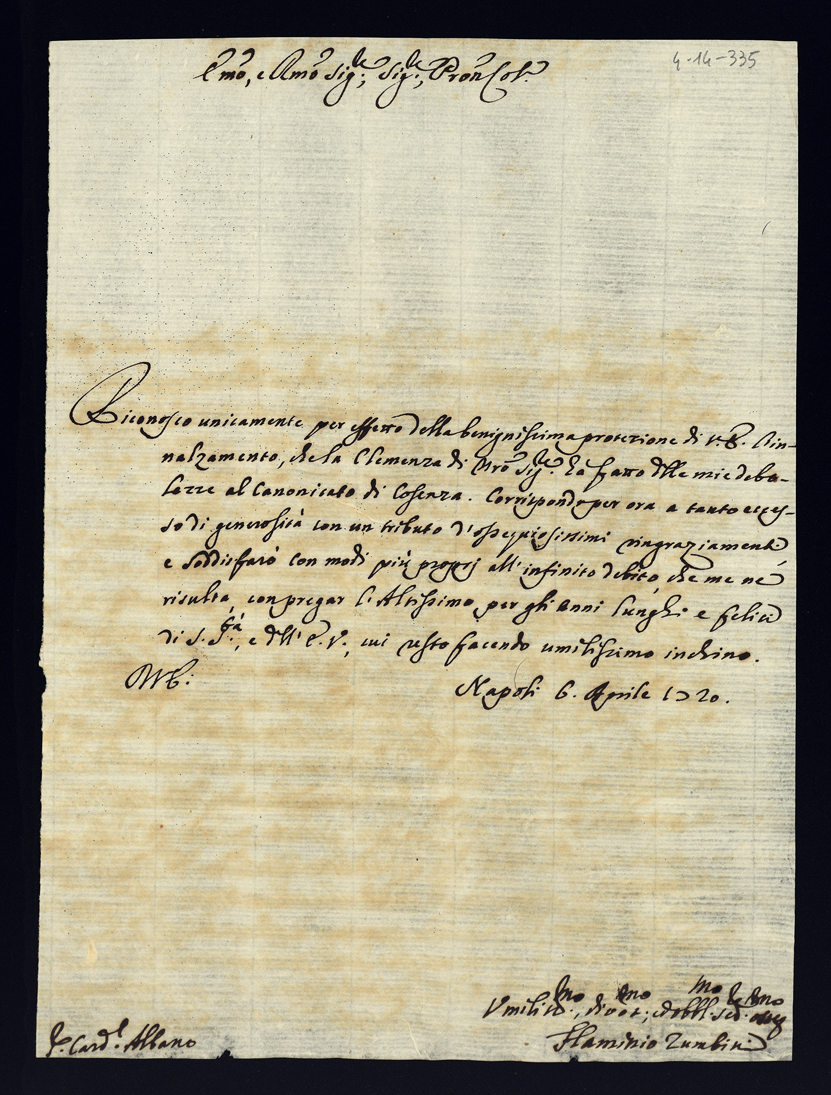 E.mo, e R.mo Sig.re, Sig.re, Pron Col.mo
4-14-335
Riconosco unicamente per effetto della benignissima protezione di V.E. l'in-
nalzamento, che la Clemenza di Nro Sig.re ha fatto delle mie debo-
lezze al Canonicato di Cosenza. Corrispondo per ora a tanto ecces-
so di generosità con un tributo d'ossequiosissimi ringraziamenti
e soddisfarò con modi più proprj all'infinito debito, che me ne
risulta, con pregar l'Altissimo per gli anni lunghi e felici
di S. S.tà, e dell'E.V., cui resto facendo umilissimo inchino.
Napoli 6. Aprile 1720.
Umilis.mo, divot.mo, ed obbl.mo se.re
S.r Card.l Albano
Flaminio Zumbini